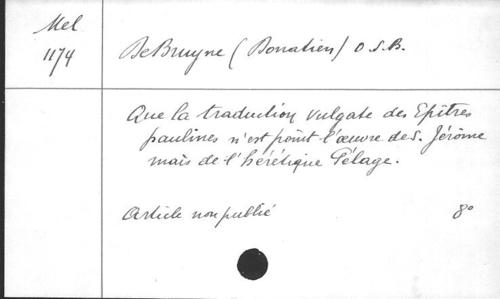 Mel
1174
De Bruyne (Donatien) O.S.B.
Que la traduction vulgate des Epîtres
paulines n'est point l'œuvre de S. Jérôme
mais de l'hérétique Pélage.
Article non publié 8°